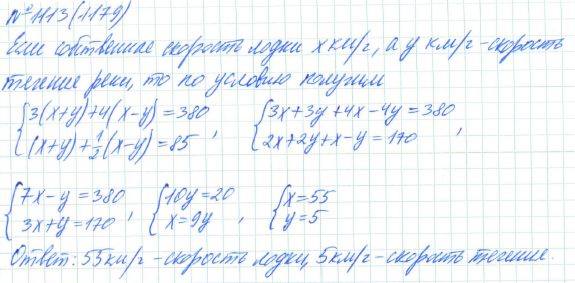 №1113(1179)
Если собственная скорость лодки x км/г, а y км/г - скорость
течение реки, то по условию получим
{3(x+y)+4(x-y)=380 , {3x+3y+4x-4y=380 ,
{(x+y)+1/2(x-y)=85 {2x+2y+x-y=170
{7x-y=380 , {10y=20 , {x=55
{3x+y=170 {x=9y {y=5
Ответ: 55 км/г - скорость лодки, 5 км/г - скорость течение.